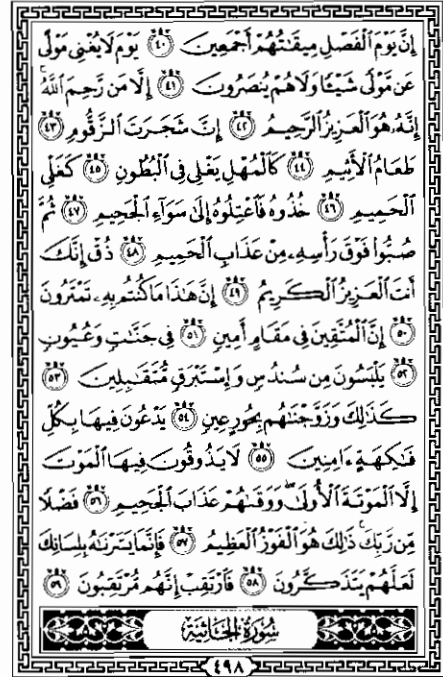 إِنَّ يَوْمَ ٱلْفَصْلِ مِيقَـٰتُهُمْ أَجْمَعِينَ ٤٠ يَوْمَ لَا يُغْنِى مَوْلًى
عَن مَّوْلًى شَيْـًٔا وَلَا هُمْ يُنصَرُونَ ٤١ إِلَّا مَن رَّحِمَ ٱللَّهُ ۚ
إِنَّهُۥ هُوَ ٱلْعَزِيزُ ٱلرَّحِيمُ ٤٢ إِنَّ شَجَرَتَ ٱلزَّقُّومِ ٤٣
طَعَامُ ٱلْأَثِيمِ ٤٤ كَٱلْمُهْلِ يَغْلِى فِى ٱلْبُطُونِ ٤٥ كَغَلْىِ
ٱلْحَمِيمِ ٤٦ خُذُوهُ فَٱعْتِلُوهُ إِلَىٰ سَوَآءِ ٱلْجَحِيمِ ٤٧ ثُمَّ
صُبُّوا۟ فَوْقَ رَأْسِهِۦ مِنْ عَذَابِ ٱلْحَمِيمِ ٤٨ ذُقْ إِنَّكَ
أَنتَ ٱلْعَزِيزُ ٱلْكَرِيمُ ٤٩ إِنَّ هَـٰذَا مَا كُنتُم بِهِۦ تَمْتَرُونَ
٥٠ إِنَّ ٱلْمُتَّقِينَ فِى مَقَامٍ أَمِينٍ ٥١ فِى جَنَّـٰتٍ وَعُيُونٍ
٥٢ يَلْبَسُونَ مِن سُندُسٍ وَإِسْتَبْرَقٍ مُّتَقَـٰبِلِينَ ٥٣
كَذَٰلِكَ وَزَوَّجْنَـٰهُم بِحُورٍ عِينٍ ٥٤ يَدْعُونَ فِيهَا بِكُلِّ
فَـٰكِهَةٍ ءَامِنِينَ ٥٥ لَا يَذُوقُونَ فِيهَا ٱلْمَوْتَ
إِلَّا ٱلْمَوْتَةَ ٱلْأُولَىٰ ۖ وَوَقَىٰهُمْ عَذَابَ ٱلْجَحِيمِ ٥٦ فَضْلًا
مِّن رَّبِّكَ ۚ ذَٰلِكَ هُوَ ٱلْفَوْزُ ٱلْعَظِيمُ ٥٧ فَإِنَّمَا يَسَّرْنَـٰهُ بِلِسَانِكَ
لَعَلَّهُمْ يَتَذَكَّرُونَ ٥٨ فَٱرْتَقِبْ إِنَّهُم مُّرْتَقِبُونَ ٥٩
سُورَةُ الجَاثِيَةِ
٤٩٨